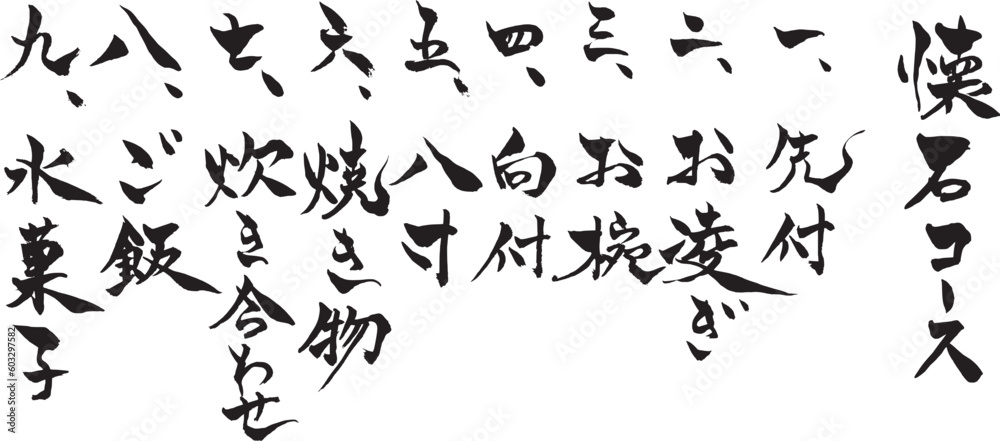 懐石コース
一、先付
二、お凌ぎ
三、お椀
四、向付
五、八寸
六、焼き物
七、炊き合わせ
八、ご飯
九、水菓子
Adobe Stock | #603297582
Adobe Stock